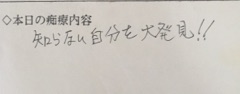 ◇本日の痴療内容
知らない自分を大発見!!